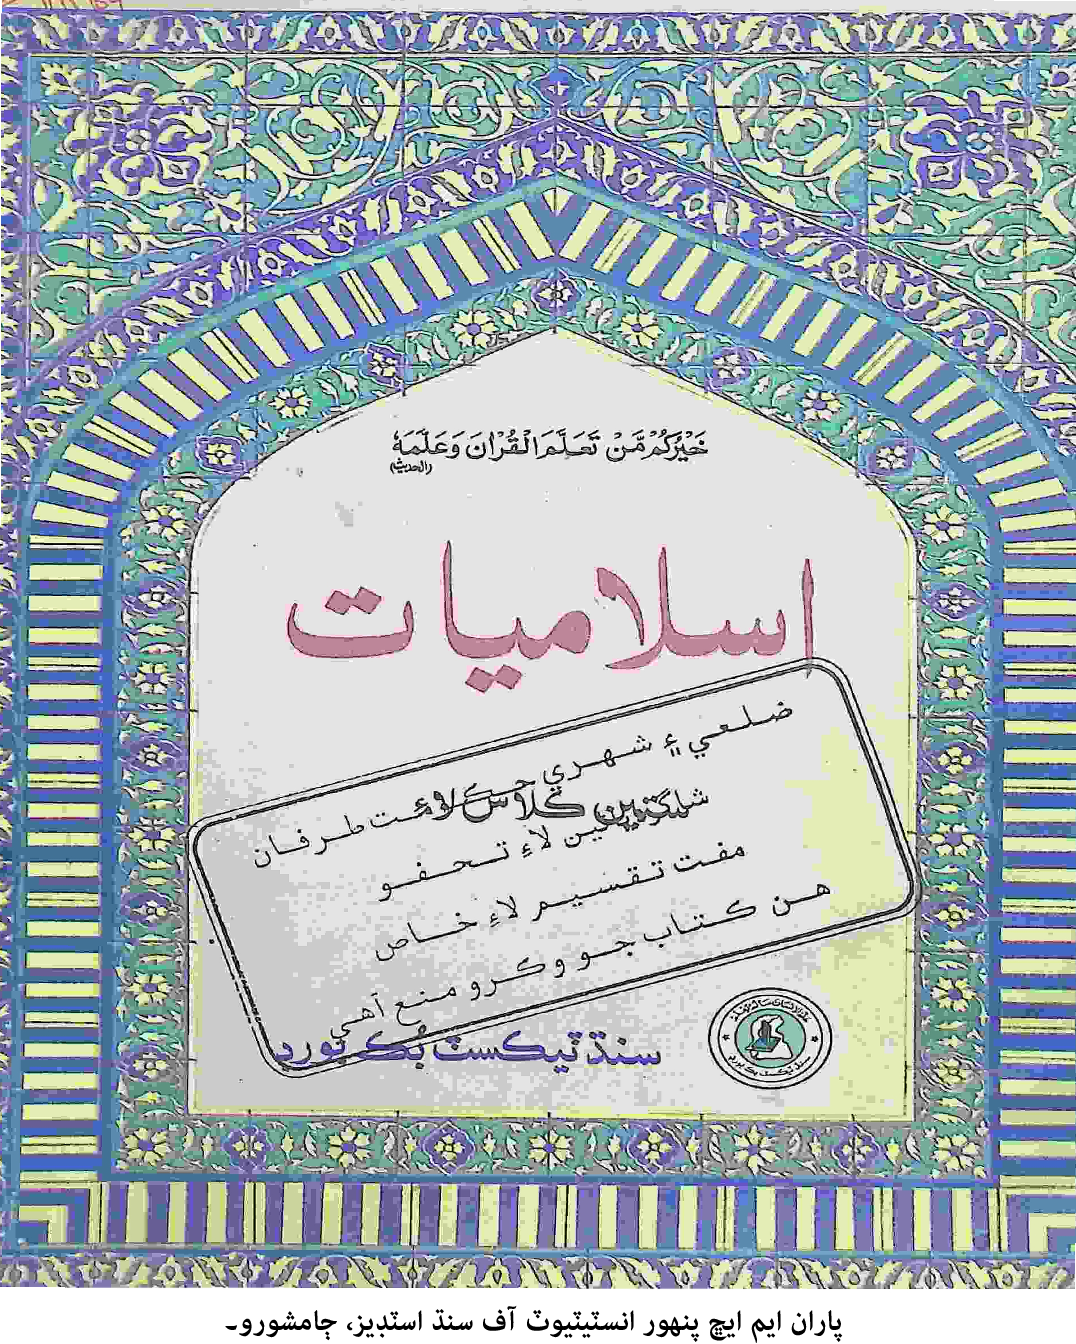 خَيْرُكُمْ مَّنْ تَعَلَّمَ الْقُرْاٰنَ وَعَلَّمَهٗ
(الحديث)
اسلاميات
ضلعي ۽ شهري حڪومت طرفان
ڪلاس لاءِ
لاءِ تحفو
مفت تقسيم لاءِ خاص
هن ڪتاب جو وڪرو منع آهي
سنڌ ٽيڪسٽ بُڪ بورڊ
پاران ايم ايڇ پنهور انسٽيٽيوٽ آف سنڌ اسٽڊيز، ڄامشورو۔